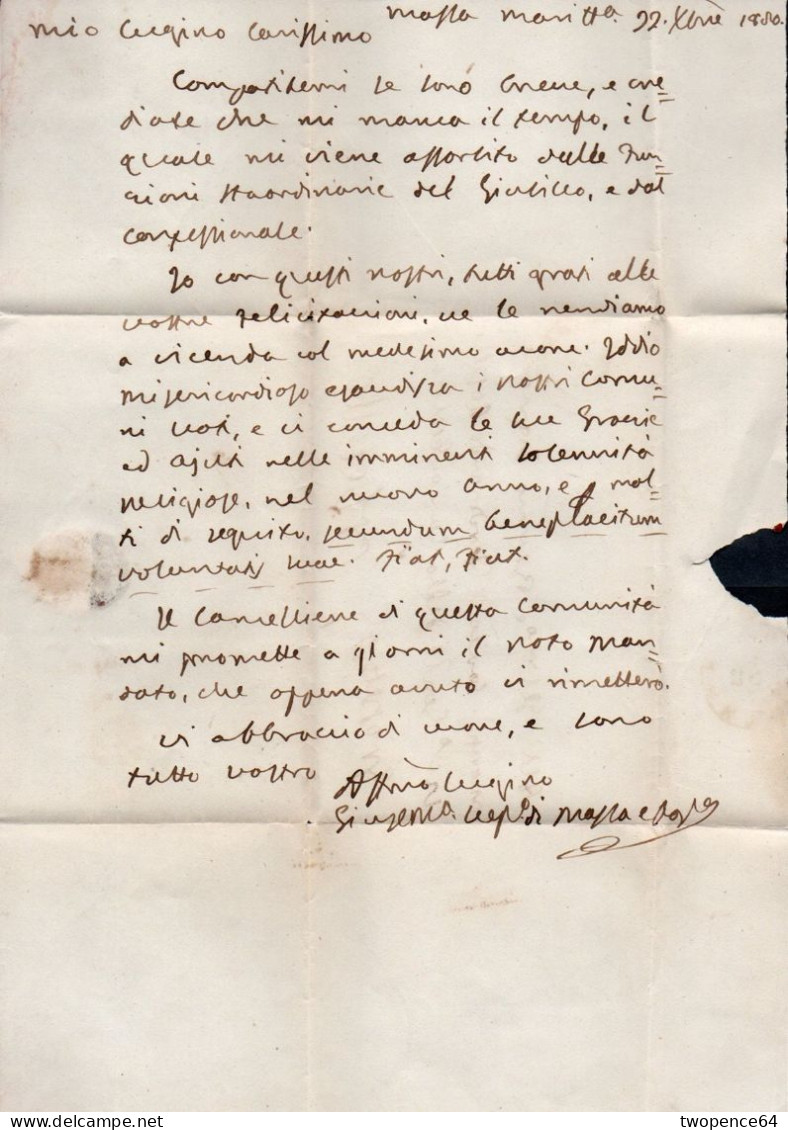 Massa Maritt.ª 22. Xbre 1850.
Mio Cugino Carissimo
Compatitemi se sono breve, e cre=
diate che mi manca il tempo, il
quale mi viene assorbito dalle Fun=
zioni straordinarie del Giubileo, e dal
confessionale.
Io con questi nostri, tutti grati alle
vostre felicitazioni, ve le rendiamo
a vicenda col medesimo cuore. Iddio
misericordioso esaudisca i nostri comu=
ni voti, e ci conceda le sue Grazie
ed ajuti nelle imminenti solennità
religiose, nel nuovo anno, e mol=
ti di seguito, secundum beneplacitum
voluntatis suae. Fiat, Fiat.
Il Cancelliere di questa Comunità
mi promette a giorni il noto Man=
dato, che appena avuto vi rimetterò.
Vi abbraccio di cuore, e sono
tutto vostro
Affmo Cugino
Giuse M.ª Vesc.º di Massa e Pop.ª
twopence64